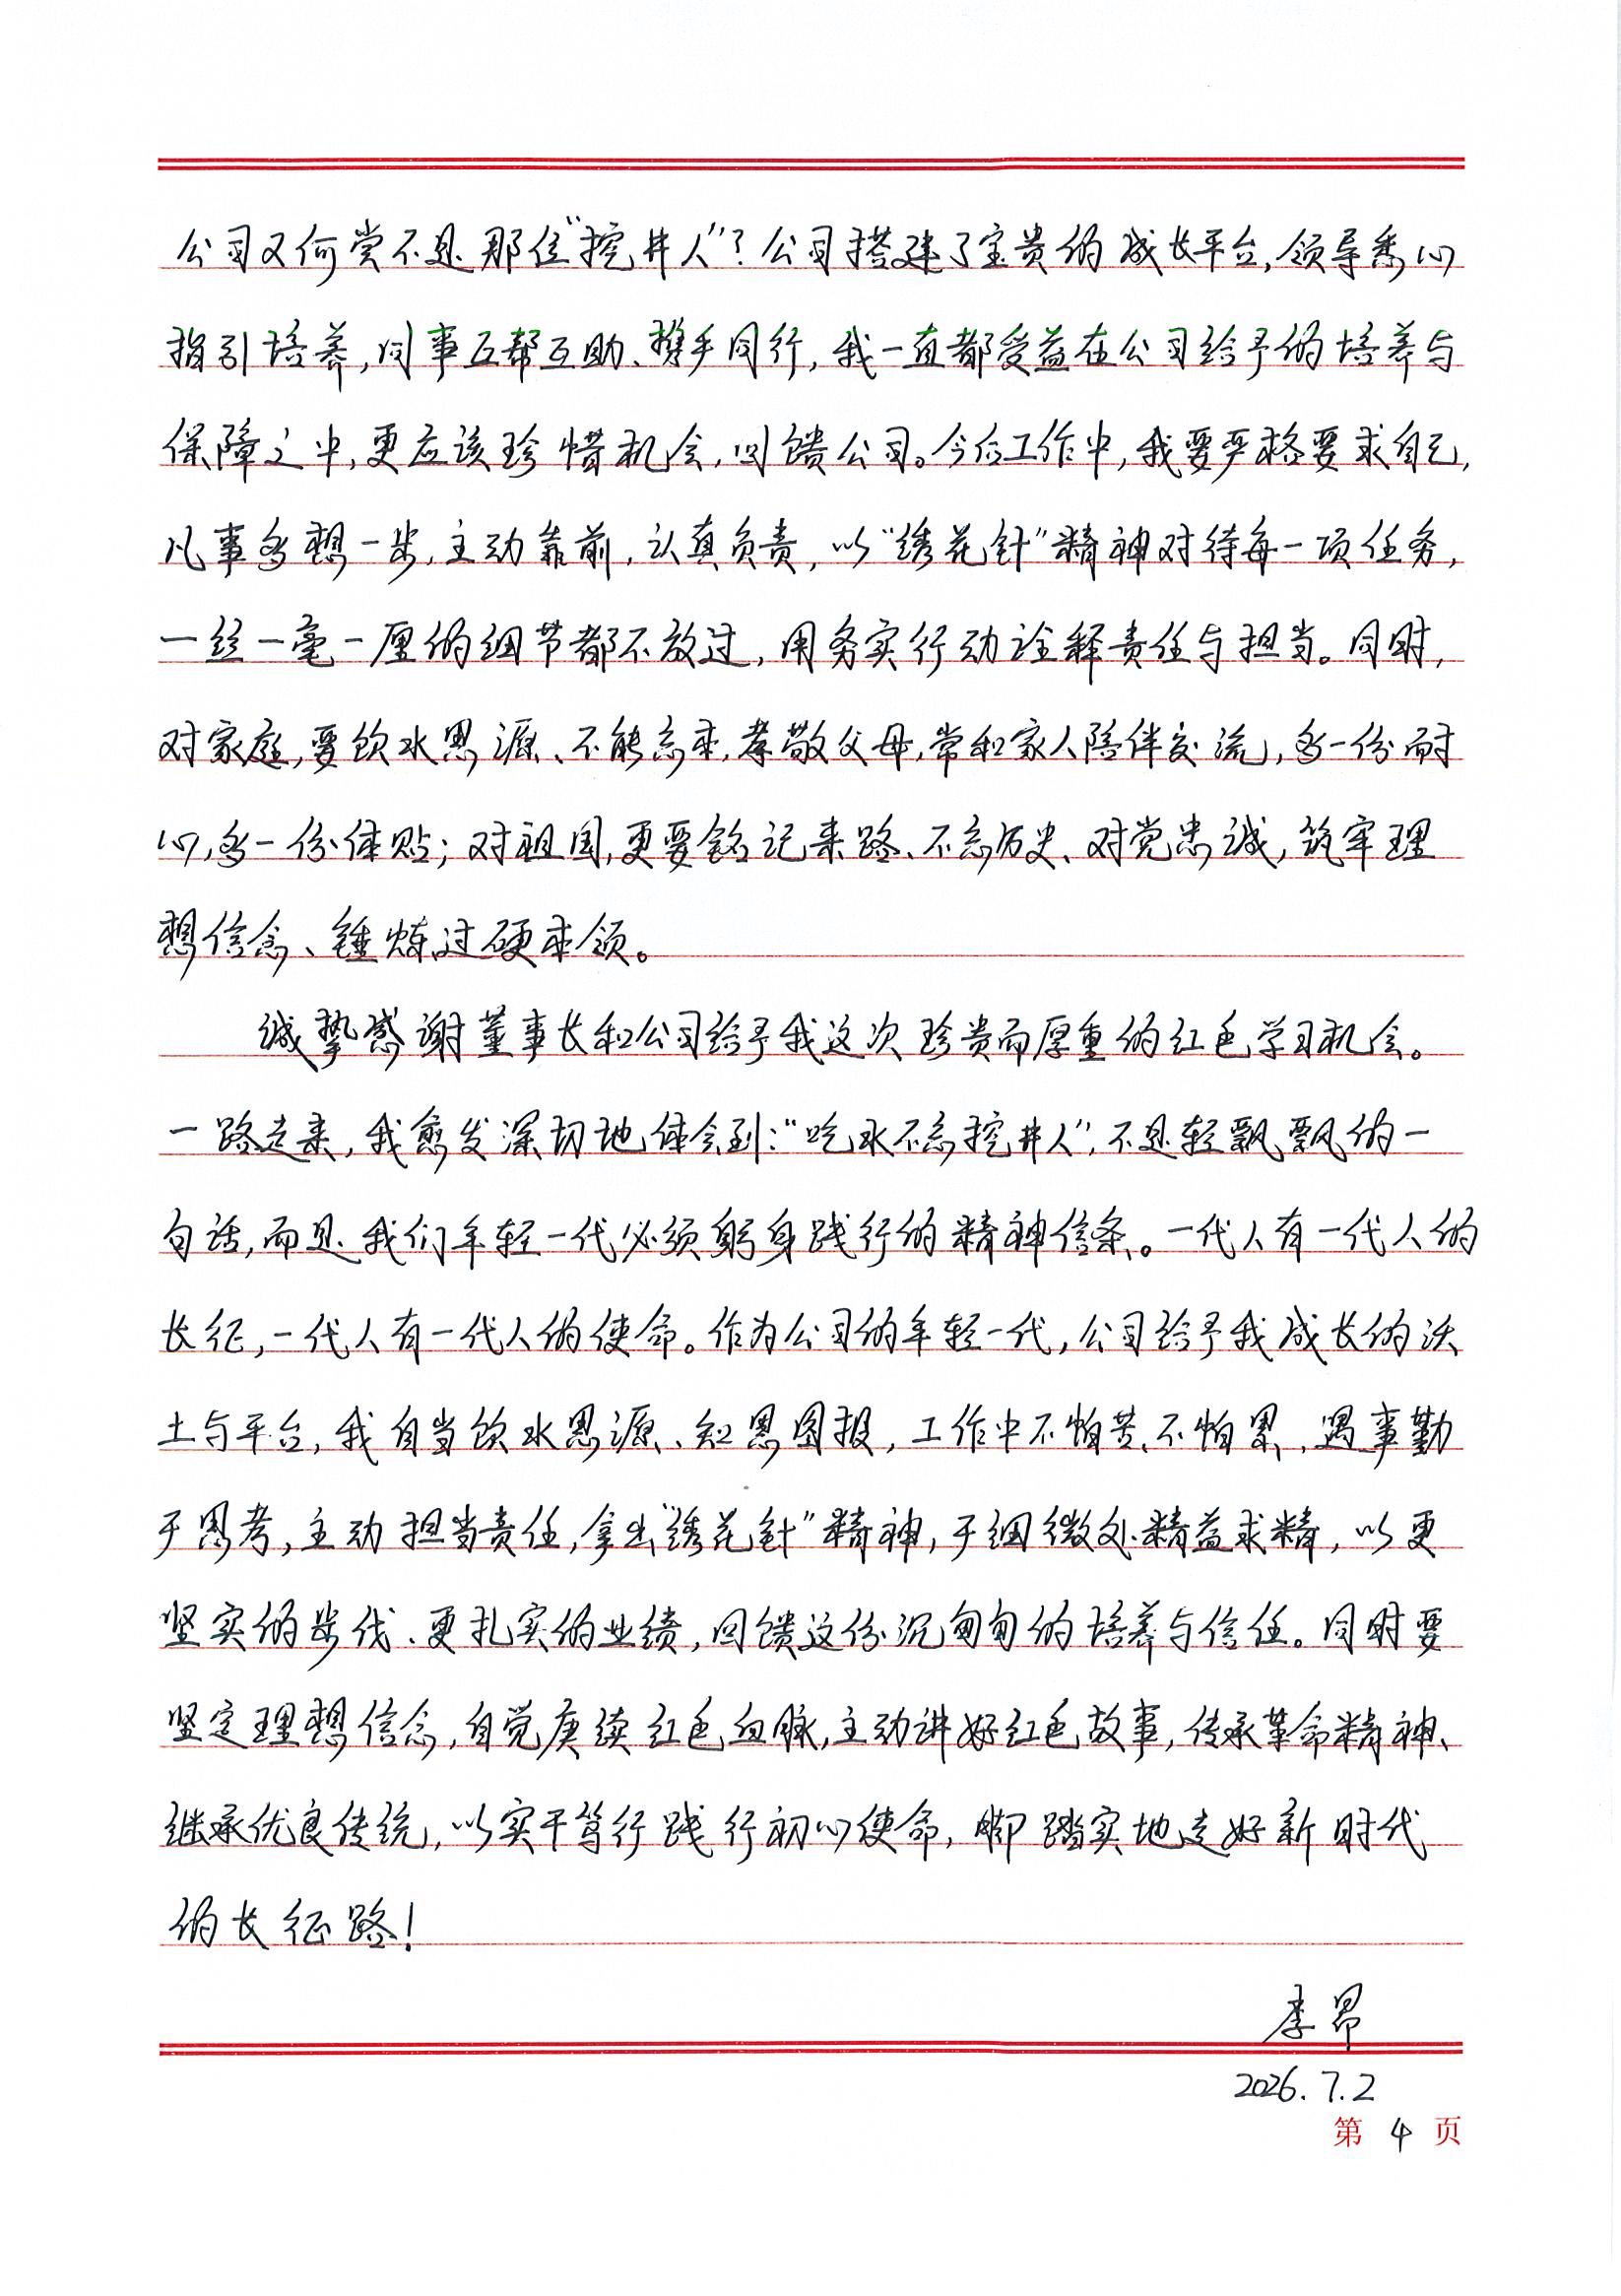 公司又何尝不是那位“挖井人”？公司搭建了宝贵的成长平台，领导悉心
指引培养，同事互帮互助、携手同行，我一直都受益在公司给予的培养与
保障之中，更应该珍惜机会，回馈公司。今后工作中，我要严格要求自己，
凡事多想一步，主动靠前，认真负责，以“绣花针”精神对待每一项任务，
一丝一毫一厘的细节都不放过，用务实行动诠释责任与担当。同时，
对家庭，要饮水思源、不能忘本，孝敬父母，常和家人陪伴交流，多一份耐
心，多一份体贴；对祖国，更要铭记来路、不忘历史、对党忠诚，筑牢理
想信念、锤炼过硬本领。
诚挚感谢董事长和公司给予我这次珍贵而厚重的红色学习机会。
一路走来，我愈发深切地体会到：“吃水不忘挖井人”，不是轻飘飘的一
句话，而是我们年轻一代必须躬身践行的精神信条。一代人有一代人的
长征，一代人有一代人的使命。作为公司的年轻一代，公司给予我成长的沃
土与平台，我自当饮水思源、知恩图报，工作中不怕苦、不怕累，遇事勤
于思考，主动担当责任，拿出“绣花针”精神，于细微处精益求精，以更
坚实的步伐、更扎实的业绩，回馈这份沉甸甸的培养与信任。同时要
坚定理想信念，自觉赓续红色血脉，主动讲好红色故事，传承革命精神、
继承优良传统，以实干笃行践行初心使命，脚踏实地走好新时代
的长征路！
李昂
2026.7.2
第 4 页